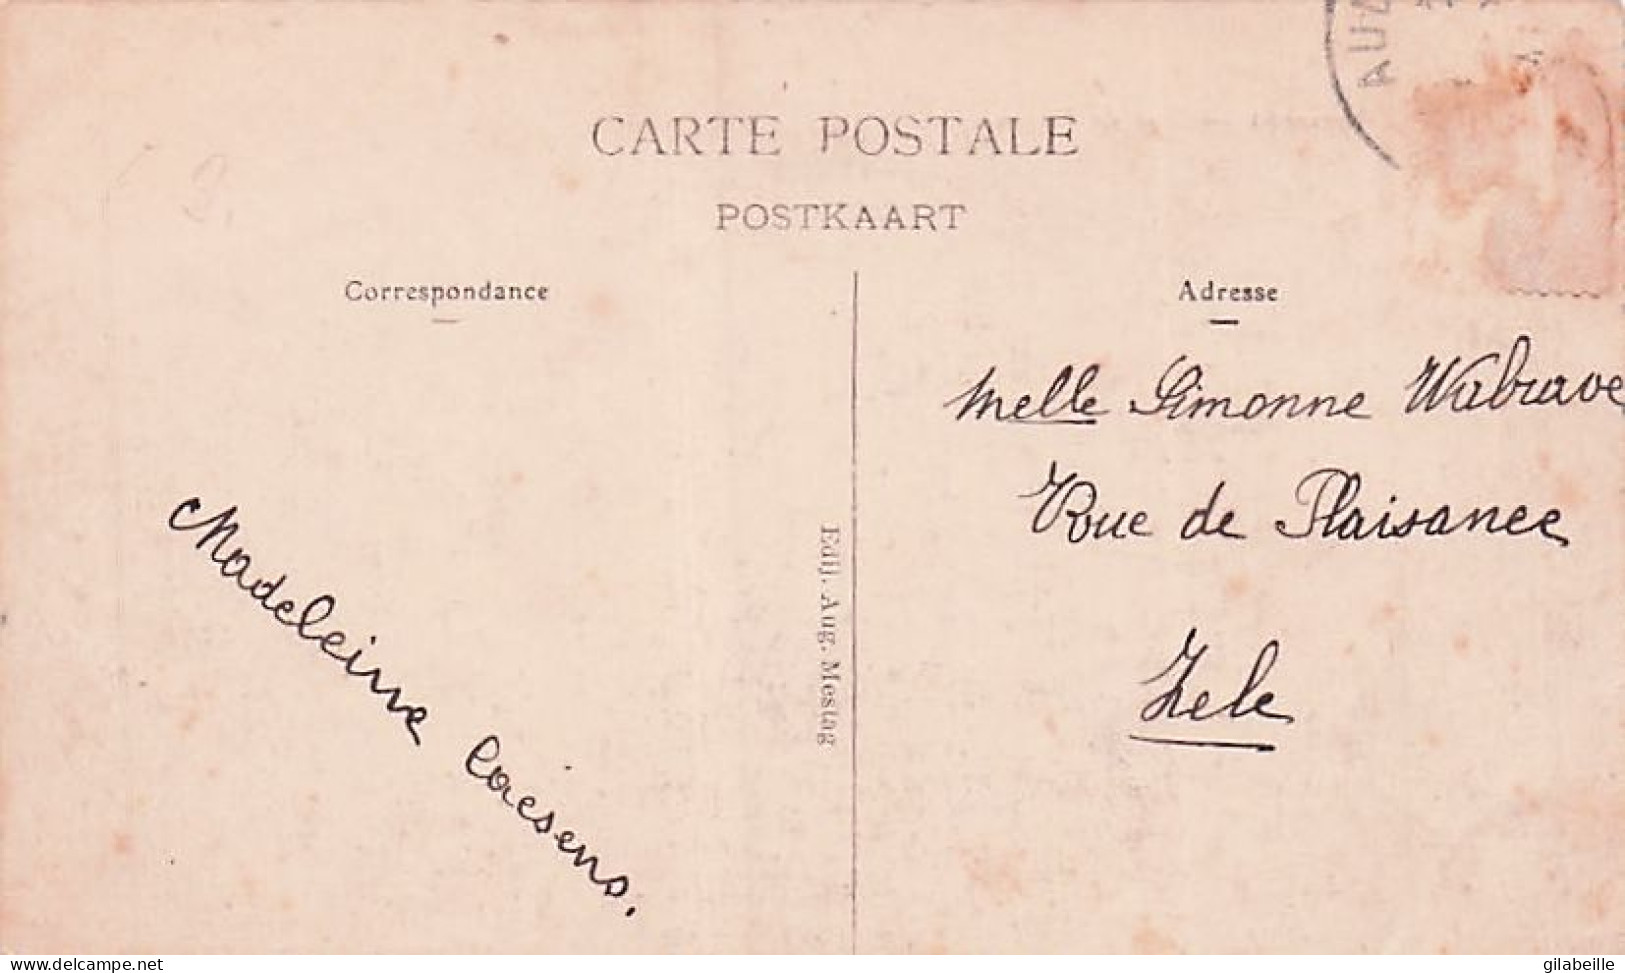 CARTE POSTALE
POSTKAART
Correspondance
Adresse
Melle Simonne Walrave
Rue de Plaisance
Zele
Madeleine Caesens.
Edij. Aug. Mestag
www.delcampe.net
gilabeille